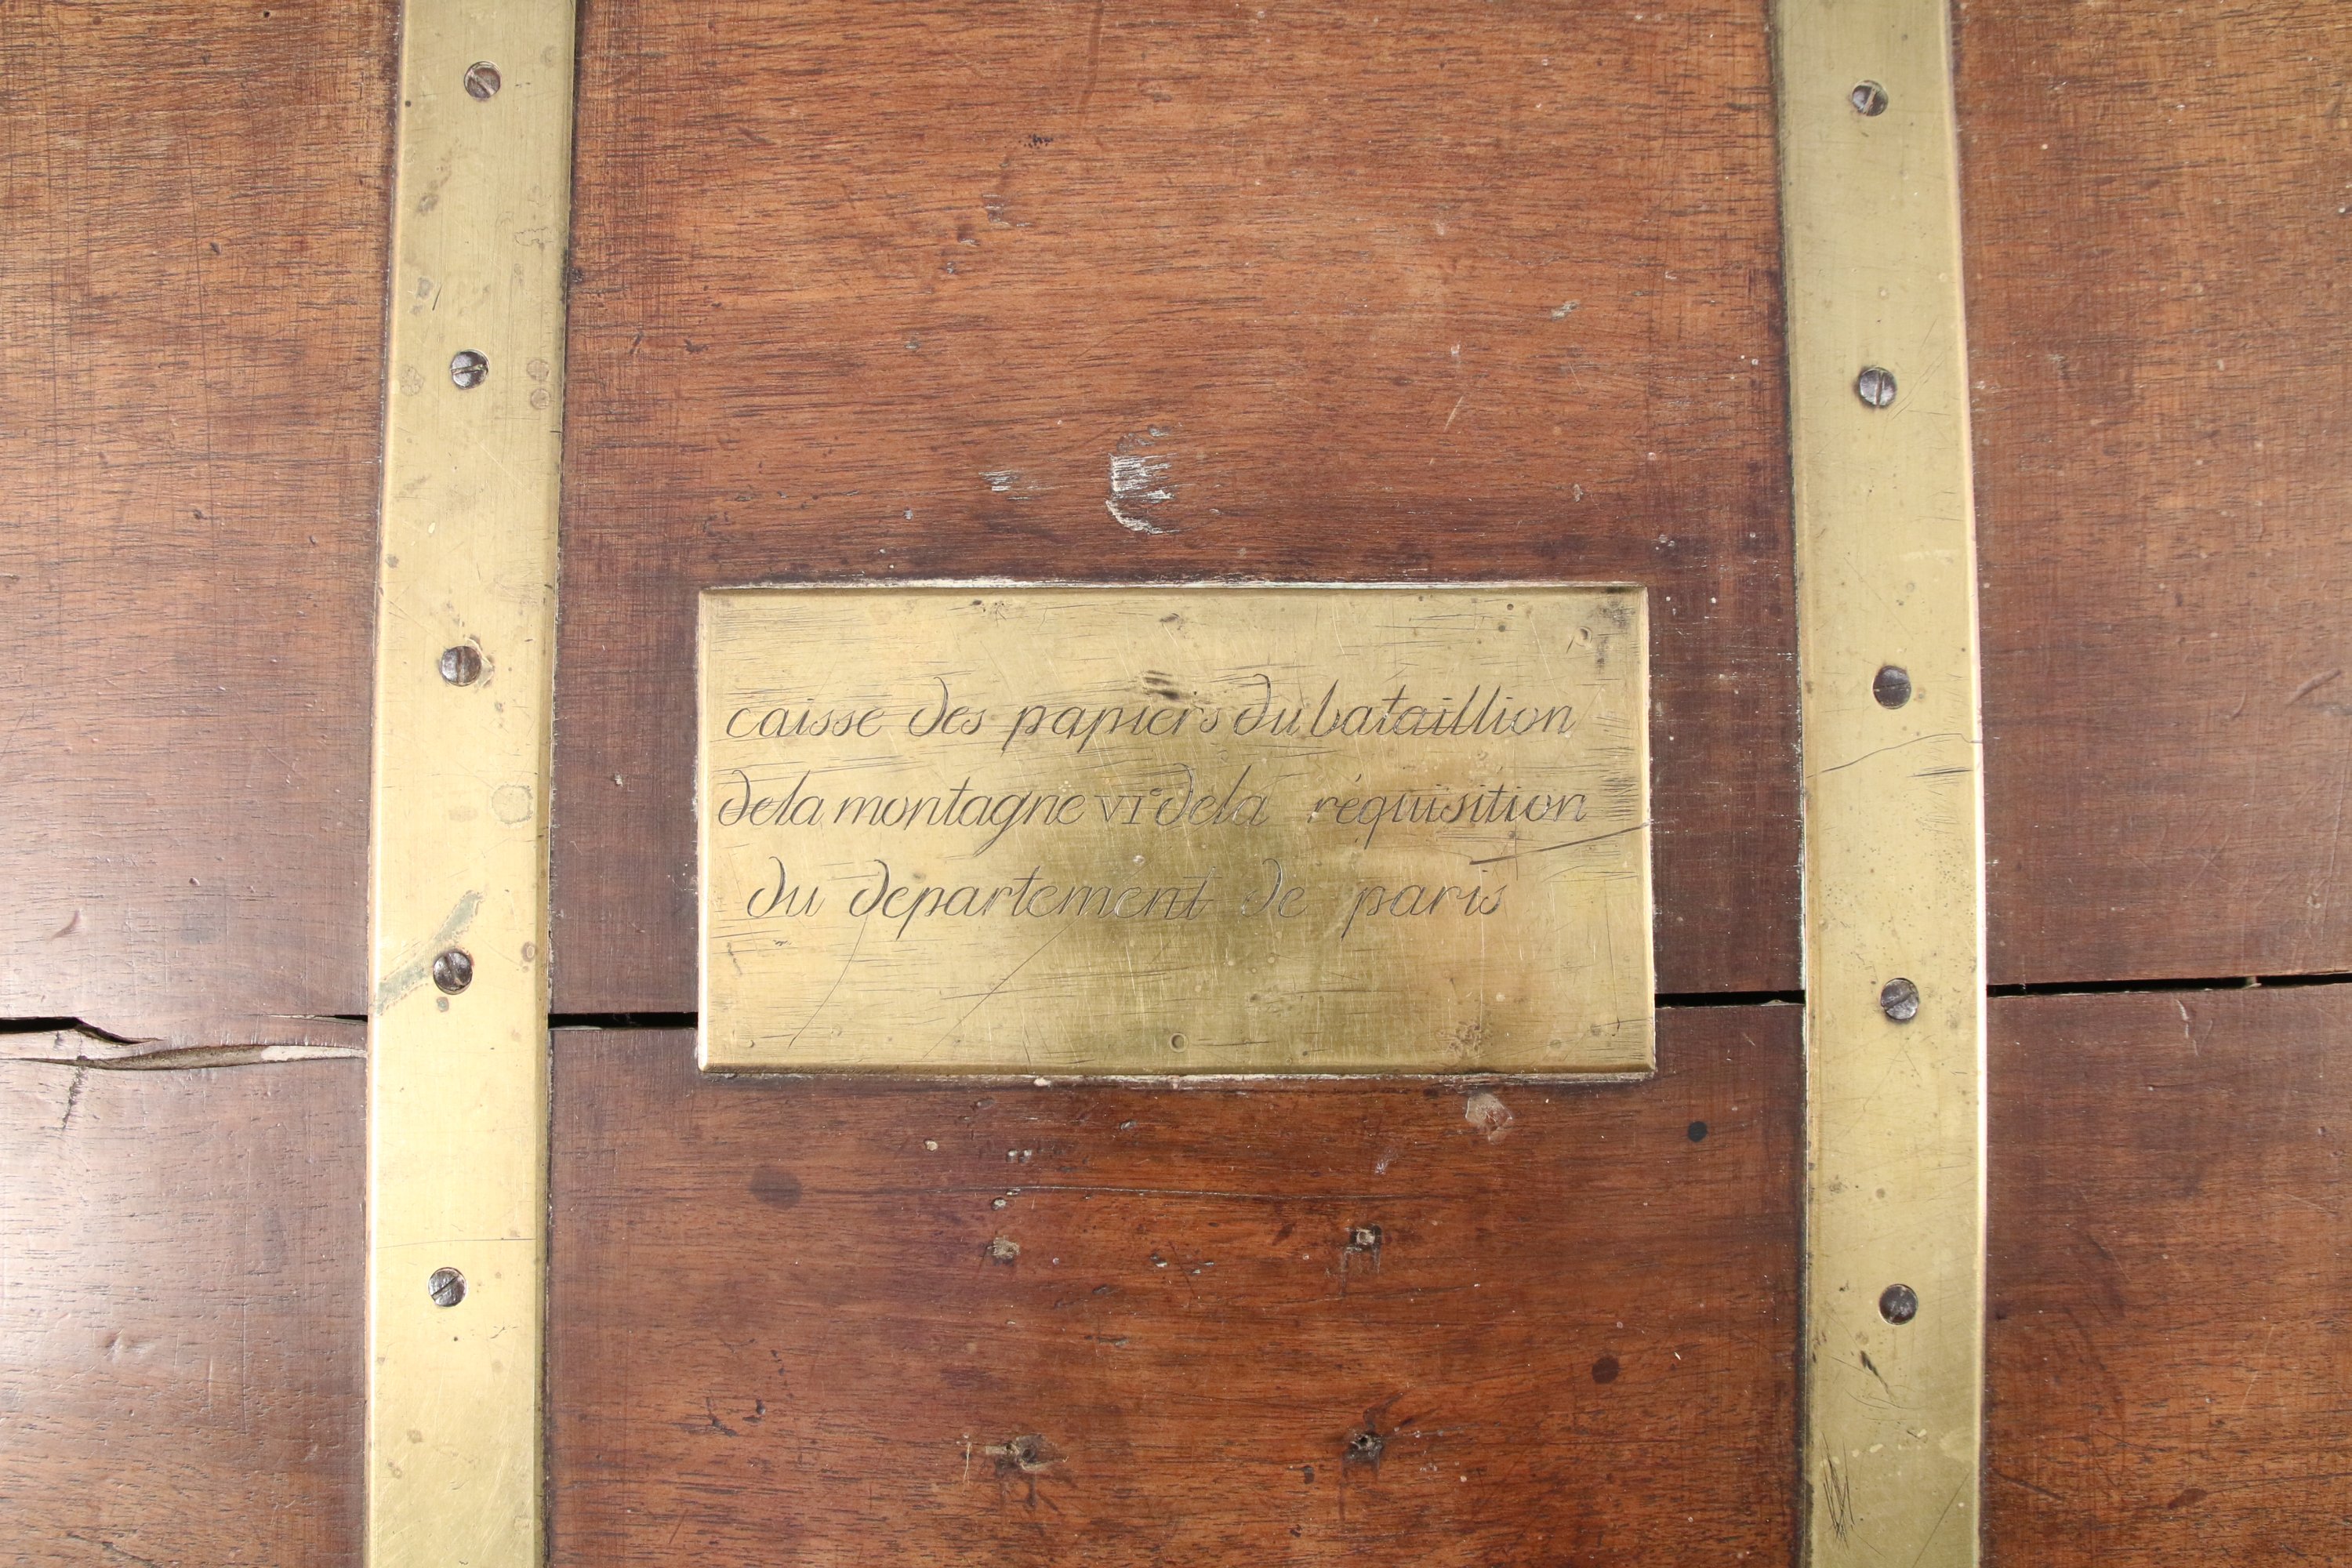 caisse des papiers du bataillion
dela montagne VIe dela réquisition
du departement de paris